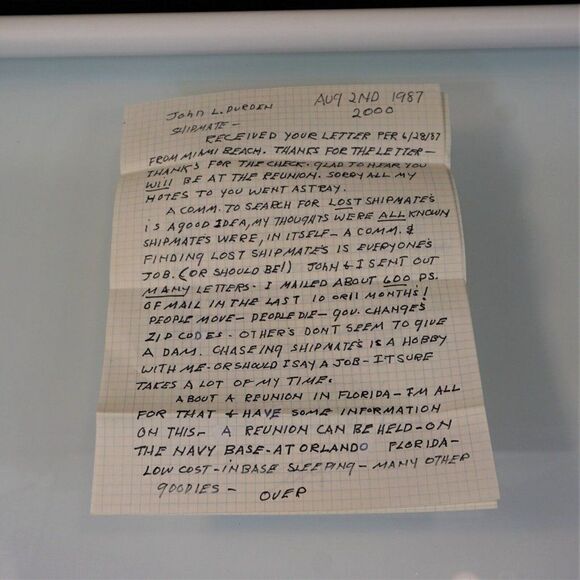 John L. Durden
AUG 2ND 1987
2000
SHIPMATE –
RECEIVED YOUR LETTER PER 6/28/87
FROM MIAMI BEACH. THANKS FOR THE LETTER –
THANKS FOR THE CHECK. GLAD TO HEAR YOU
WILL BE AT THE REUNION. SORRY ALL MY
NOTES TO YOU WENT ASTRAY.
A COMM. TO SEARCH FOR LOST SHIPMATE'S
IS A GOOD IDEA, MY THOUGHTS WERE ALL KNOWN
SHIPMATES WERE, IN ITSELF – A COMM. &
FINDING LOST SHIPMATE'S IS EVERYONE'S
JOB. (OR SHOULD BE!) JOHN & I SENT OUT
MANY LETTERS. I MAILED ABOUT 600 PS.
OF MAIL IN THE LAST 10 OR 11 MONTHS!
PEOPLE MOVE – PEOPLE DIE – GOV. CHANGES
ZIP CODES. OTHER'S DONT SEEM TO GIVE
A DAM. CHASEING SHIPMATE'S IS A HOBBY
WITH ME. OR SHOULD I SAY A JOB – IT SURE
TAKES A LOT OF MY TIME.
ABOUT A REUNION IN FLORIDA – I'M ALL
FOR THAT & HAVE SOME INFORMATION
ON THIS – A REUNION CAN BE HELD – ON
THE NAVY BASE – AT ORLANDO FLORIDA –
LOW COST – IN BASE SLEEPING – MANY OTHER
GOODIES –
OVER